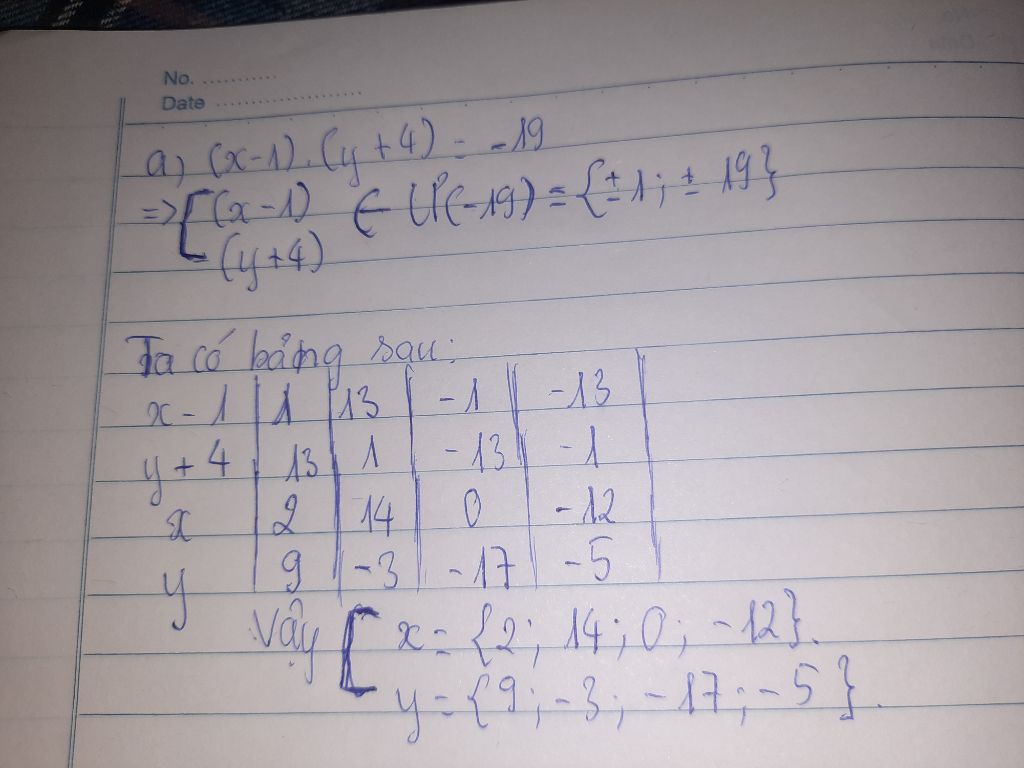 No. ............
Date .......................
a) (x-1).(y+4) = -19
=> [ (x-1) ∈ Ư(-19) = {±1; ± 19}
(y+4)
Ta có bảng sau:
x-1 | 1 | 13 | -1 | -13 |
y+4 | 13 | 1 | -13 | -1
x | 2 | 14 | 0 | -12
y | 9 | -3 | -17 | -5
Vậy [ x = {2; 14; 0; -12}.
y = {9; -3; -17; -5}.